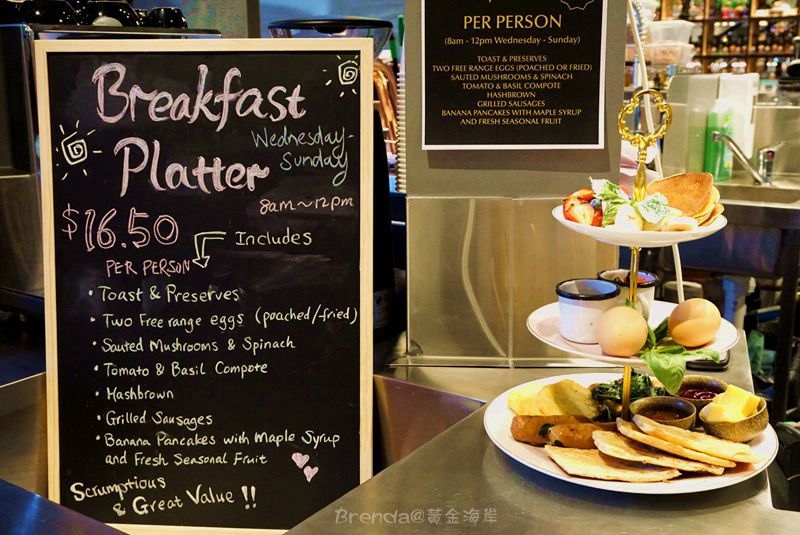 Breakfast
Platter
Wednesday-
Sunday
8am~12pm
$16.50
PER PERSON
Includes
• Toast & Preserves
• Two Free range eggs (poached/fried)
• Sauted Mushrooms & Spinach
• Tomato & Basil Compote
• Hashbrown
• Grilled Sausages
• Banana Pancakes with Maple Syrup
and Fresh Seasonal Fruit
Scrumptious
& Great Value !!
PER PERSON
(8am - 12pm Wednesday - Sunday)
TOAST & PRESERVES
TWO FREE RANGE EGGS (POACHED OR FRIED)
SAUTED MUSHROOMS & SPINACH
TOMATO & BASIL COMPOTE
HASHBROWN
GRILLED SAUSAGES
BANANA PANCAKES WITH MAPLE SYRUP
AND FRESH SEASONAL FRUIT
Brenda@黃金海岸